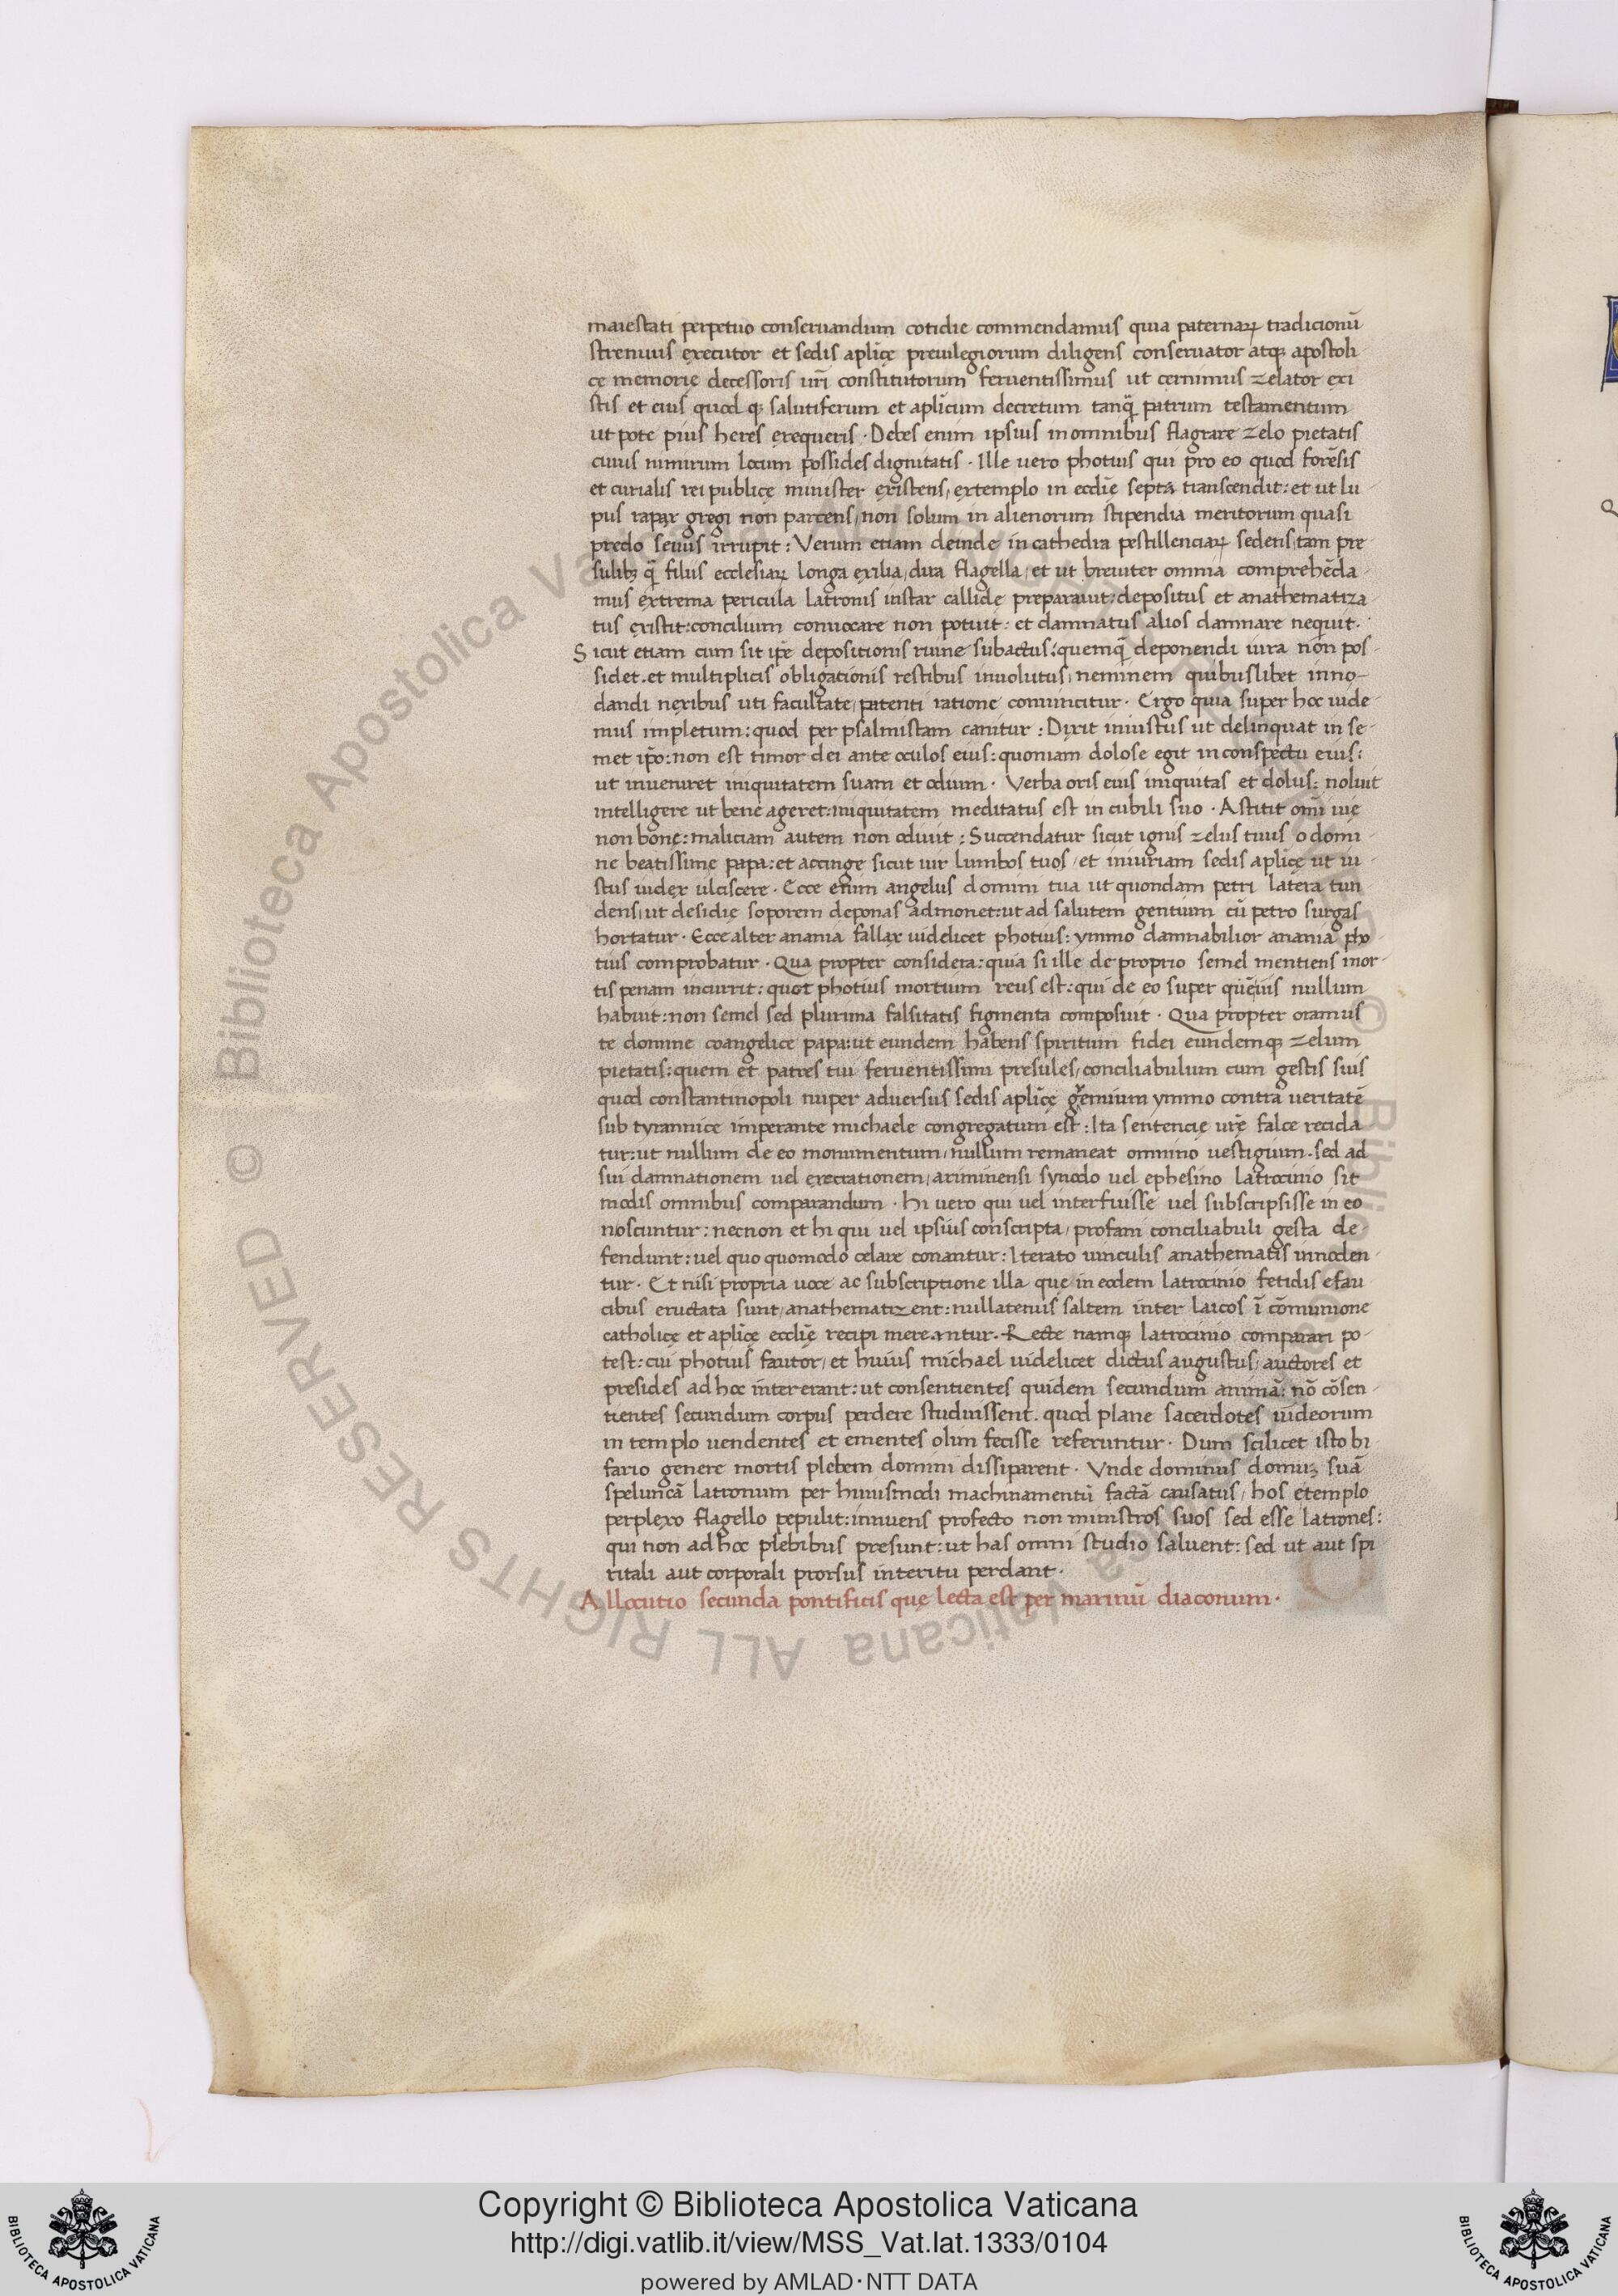 maiestati perpetuo conseruandum cotidie commendamus quia paternaꝝ tradicionū
strenuus executor et sedis aplicę preuilegiorum diligens conseruator atqꝫ apostoli-
cę memorię decessoris uri constitutorum feruentissimus ut cernimus zelator exi
stis et eius quod qꝫ salutiferum et aplicum decretum tanq̄ patrum testamentum
ut pote pius heres exequeris · Debes enim ipsius in omnibus flagrare zelo pietatis
cuius nimirum locum possides dignitatis · Ille uero photius qui pro eo quod forēsis
et curialis rei publicę minister existens, extemplo in ecclię septa transcendit: et ut lu-
pus rapax gregi non parcens, non solum in alienorum stipendia meritorum quasi
predo seuus irrupit: Verum etiam deinde in cathedra pestillenciaꝝ sedens, tam pre-
sulibꝫ q̄ filiis ecclesiaꝝ longa exilia, dira flagella, et ut breuiter omnia comprehēda-
mus extrema pericula latronis instar callide preparauit: depositus et anathematiza-
tus existit: concilium conuocare non potuit: et damnatus alios damnare nequit.
Sicut etiam cum sit ipē depositionis ruine subactus: quemq̄ deponendi iura non pos-
sidet. et multiplicis obligationis restibus inuolutus, neminem quibuslibet inno-
dandi nexibus uti facultate, patenti ratione conuincitur · Ergo quia super hoc uide-
mus impletum: quod per psalmistam canitur: Dixit iniustus ut delinquat in se-
met ipo: non est timor dei ante oculos eius: quoniam dolose egit in conspectu eius:
ut inueniret iniquitatem suam et odium · Verba oris eius iniquitas et dolus: noluit
intelligere ut bene ageret: iniquitatem meditatus est in cubili suo · Astitit omi uie
non bonę: maliciam autem non odiuit: Succendatur sicut ignis zelus tuus o domi-
ne beatissime papa: et accinge sicut uir lumbos tuos, et iniuriam sedis aplicę ut iu-
stus iudex ulciscere · Ecce enim angelus domini tua ut quondam petri latera tun
dens, ut desidię soporem deponas admonet: ut ad salutem gentium cū petro surgas
hortatur · Ecce alter anania fallax uidelicet photius: ymmo damnabilior anania pho-
tius comprobatur · Qua propter considera: quia si ille de proprio semel mentiens mor-
tis penam incurrit: quot photius mortium reus est: qui de eo super
 nullum
habuit: non semel sed plurima falsitatis figmenta composuit · Qua propter oramus
te domine coangelice papa: ut eundem habens spiritum fidei eundemqꝫ zelum
pietatis: quem et patres tui feruentissimi presules, conciliabulum cum gestis suis
quod constantinopoli nuper aduersus sedis aplicę gremium ymmo contra ueritatē
sub tyrannice imperante michaele congregatum est: Ita sentencię urę falce recida
tur: ut nullum de eo monumentum, nullum remaneat omnino uestigium. sed ad
sui damnationem uel execrationem, ariminensi synodo uel ephesino latrocinio sit
modis omnibus comparandum · Hi uero qui uel interfuisse uel subscripsisse in eo
noscuntur: necnon et hi qui uel ipsius conscripta, profani conciliabuli gesta de-
fendunt: uel quo quomodo celare conantur: Iterato uinculis anathematis innoden-
tur · Et nisi propria uoce ac subscriptione illa quę in eodem latrocinio fetidis e fau-
cibus eructata sunt, anathematizent: nullatenus saltem inter laicos ī cōmunione
catholicę et aplicę ecclię recipi mereantur. Recte namqꝫ latrocinio comparari po-
test: cui photius fautor, et huius michael uidelicet dictus augustus, auctores et
presides ad hoc intererant: ut consentientes quidem secundum animā: nō cōsen-
tientes secundum corpus perdere studuissent. quod plane sacerdotes iudeorum
in templo uendentes et ementes olim fecisse referuntur · Dum scilicet isto bi-
fario genere mortis plebem domini dissiparent · Vnde dominus domuꝫ suā
speluncā latronum per huiusmodi machinamentū factā causatus, hos e templo
perplexo flagello pepulit: innuens profecto non ministros suos sed esse latrones:
qui non ad hoc plebibus presunt: ut has omni studio saluent: sed ut aut spi
ritali aut corporali prorsus interitu perdant ·
Allocutio secunda pontificis quę lecta est per marinū diaconum ·
© Biblioteca Apostolica Vaticana ALL RIGHTS RESERVED
Copyright © Biblioteca Apostolica Vaticana
http://digi.vatlib.it/view/MSS_Vat.lat.1333/0104
powered by AMLAD·NTT DATA
BIBLIOTECA APOSTOLICA VATICANA
BIBLIOTECA APOSTOLICA VATICANA